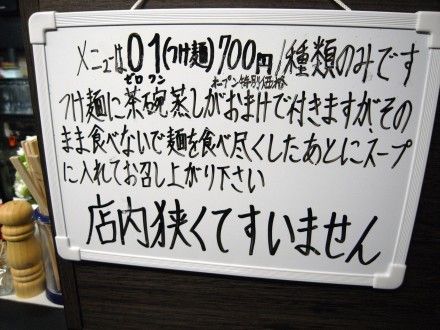 メニューは01(つけ麺)700円/1種類のみです
ゼロワン オープン特別価格
つけ麺に茶碗蒸しがおまけで付きますが、その
まま食べないで麺を食べ尽くしたあとにスープ
に入れてお召し上がり下さい
店内狭くてすいません